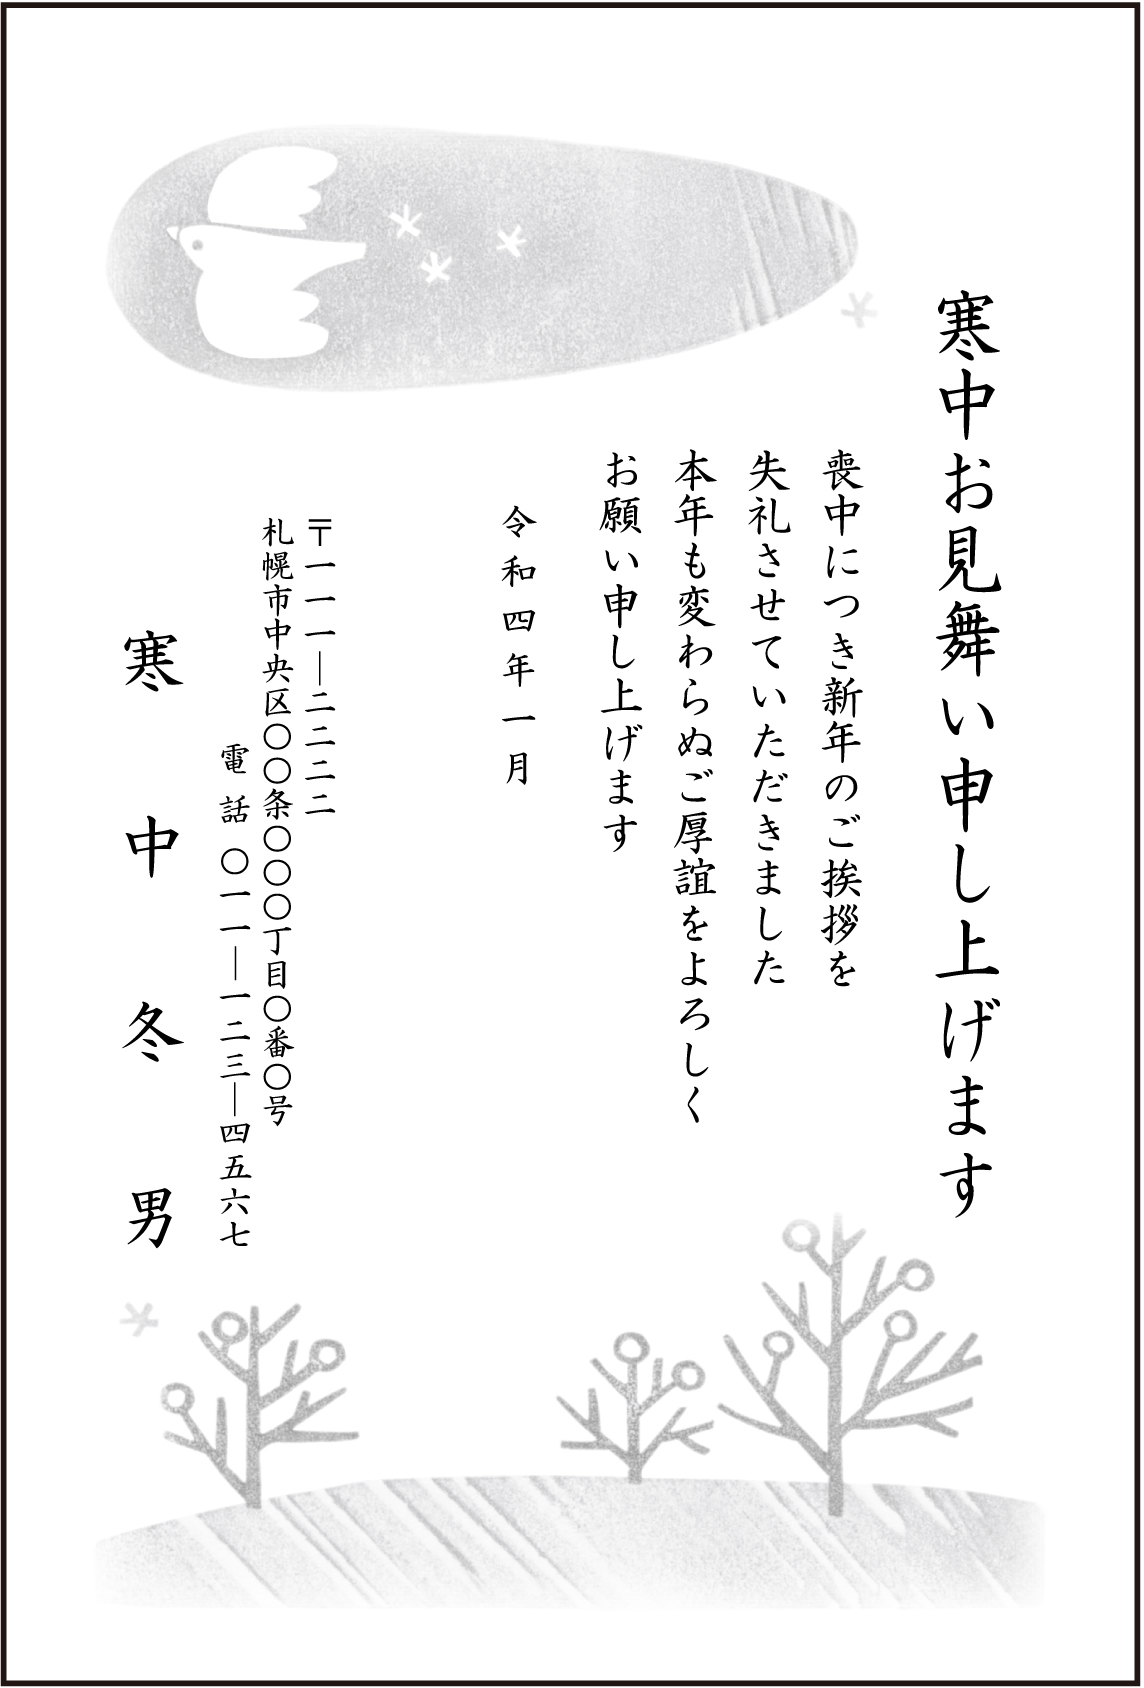 寒中お見舞い申し上げます
喪中につき新年のご挨拶を
失礼させていただきました
本年も変わらぬご厚誼をよろしく
お願い申し上げます
令和四年一月
〒一一一―二二二二
札幌市中央区〇〇条〇〇〇丁目〇番〇号
電話 〇一一―一二三―四五六七
寒中冬男